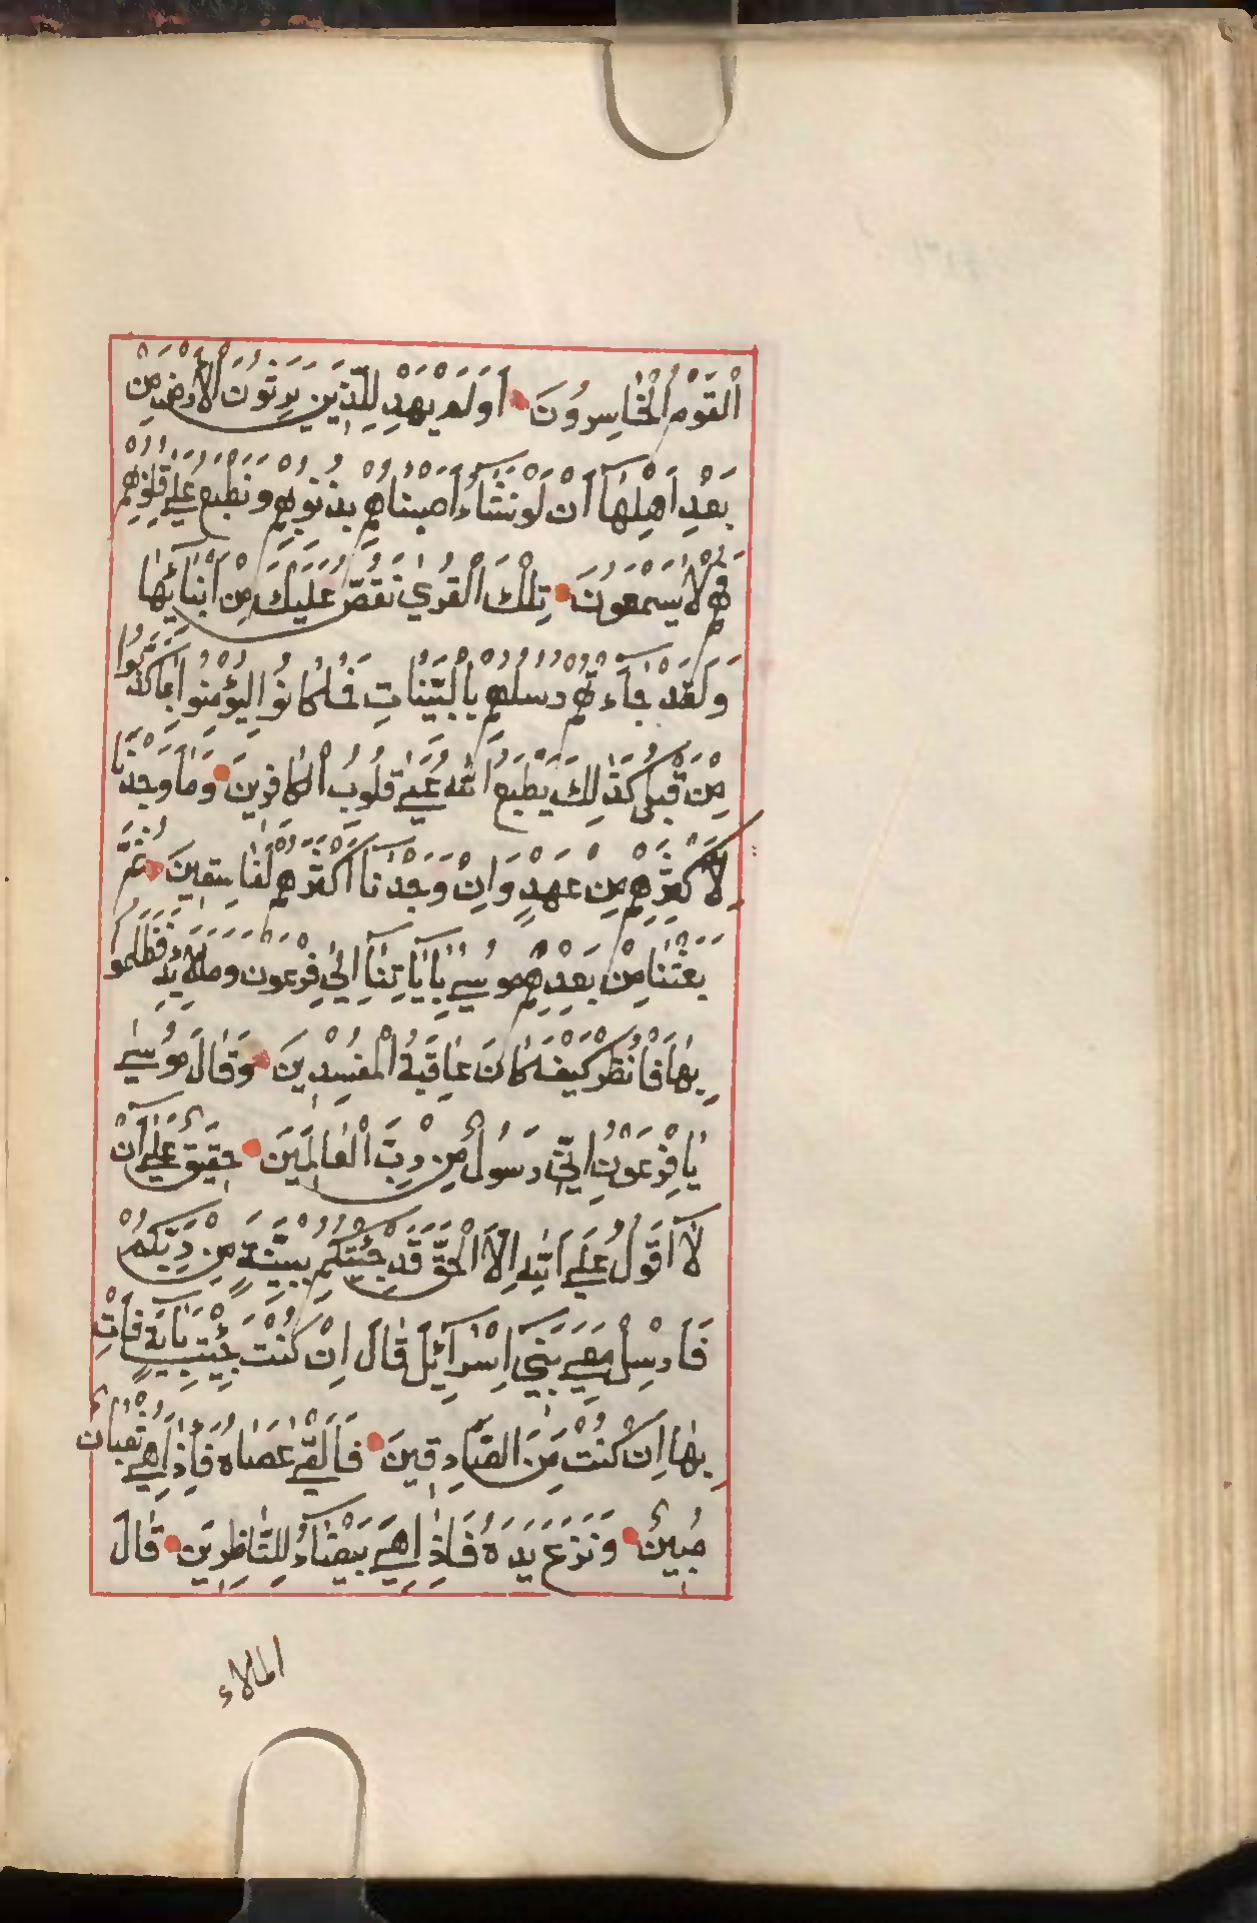 اَلْقَوْمُ الْخَاسِرُونَ اَوَلَمْ يَهْدِ لِلَّذِينَ يَرِثُونَ الْاَرْضَ مِنْ
بَعْدِ اَهْلِهَا اَنْ لَوْ نَشَاءُ اَصَبْنَاهُمْ بِذُنُوبِهِمْ وَنَطْبَعُ عَلٰى قُلُوبِهِمْ
فَهُمْ لَا يَسْمَعُونَ تِلْكَ الْقُرٰى نَقُصُّ عَلَيْكَ مِنْ اَنْبَائِهَا
وَلَقَدْ جَاءَتْهُمْ رُسُلُهُمْ بِالْبَيِّنَاتِ فَمَا كَانُوا لِيُؤْمِنُوا بِمَا كَذَّبُوا
مِنْ قَبْلُ كَذٰلِكَ يَطْبَعُ اللّٰهُ عَلٰى قُلُوبِ الْكَافِرِينَ وَمَا وَجَدْنَا
لِاَكْثَرِهِمْ مِنْ عَهْدٍ وَاِنْ وَجَدْنَا اَكْثَرَهُمْ لَفَاسِقِينَ ثُمَّ
بَعَثْنَا مِنْ بَعْدِهِمْ مُوسٰى بِاٰيَاتِنَا اِلٰى فِرْعَوْنَ وَمَلَائِهِ فَظَلَمُوا
بِهَا فَانْظُرْ كَيْفَ كَانَ عَاقِبَةُ الْمُفْسِدِينَ وَقَالَ مُوسٰى
يَا فِرْعَوْنُ اِنِّى رَسُولٌ مِنْ رَبِّ الْعَالَمِينَ حَقِيقٌ عَلٰى اَنْ
لَا اَقُولَ عَلَى اللّٰهِ اِلَّا الْحَقَّ قَدْ جِئْتُكُمْ بِبَيِّنَةٍ مِنْ رَبِّكُمْ
فَاَرْسِلْ مَعِىَ بَنِى اِسْرَائِلَ قَالَ اِنْ كُنْتَ جِئْتَ بِاٰيَةٍ فَاْتِ
بِهَا اِنْ كُنْتَ مِنَ الصَّادِقِينَ فَاَلْقٰى عَصَاهُ فَاِذَا هِىَ ثُعْبَانٌ
مُبِينٌ وَنَزَعَ يَدَهُ فَاِذَا هِىَ بَيْضَاءُ لِلنَّاظِرِينَ قَالَ
الملاء